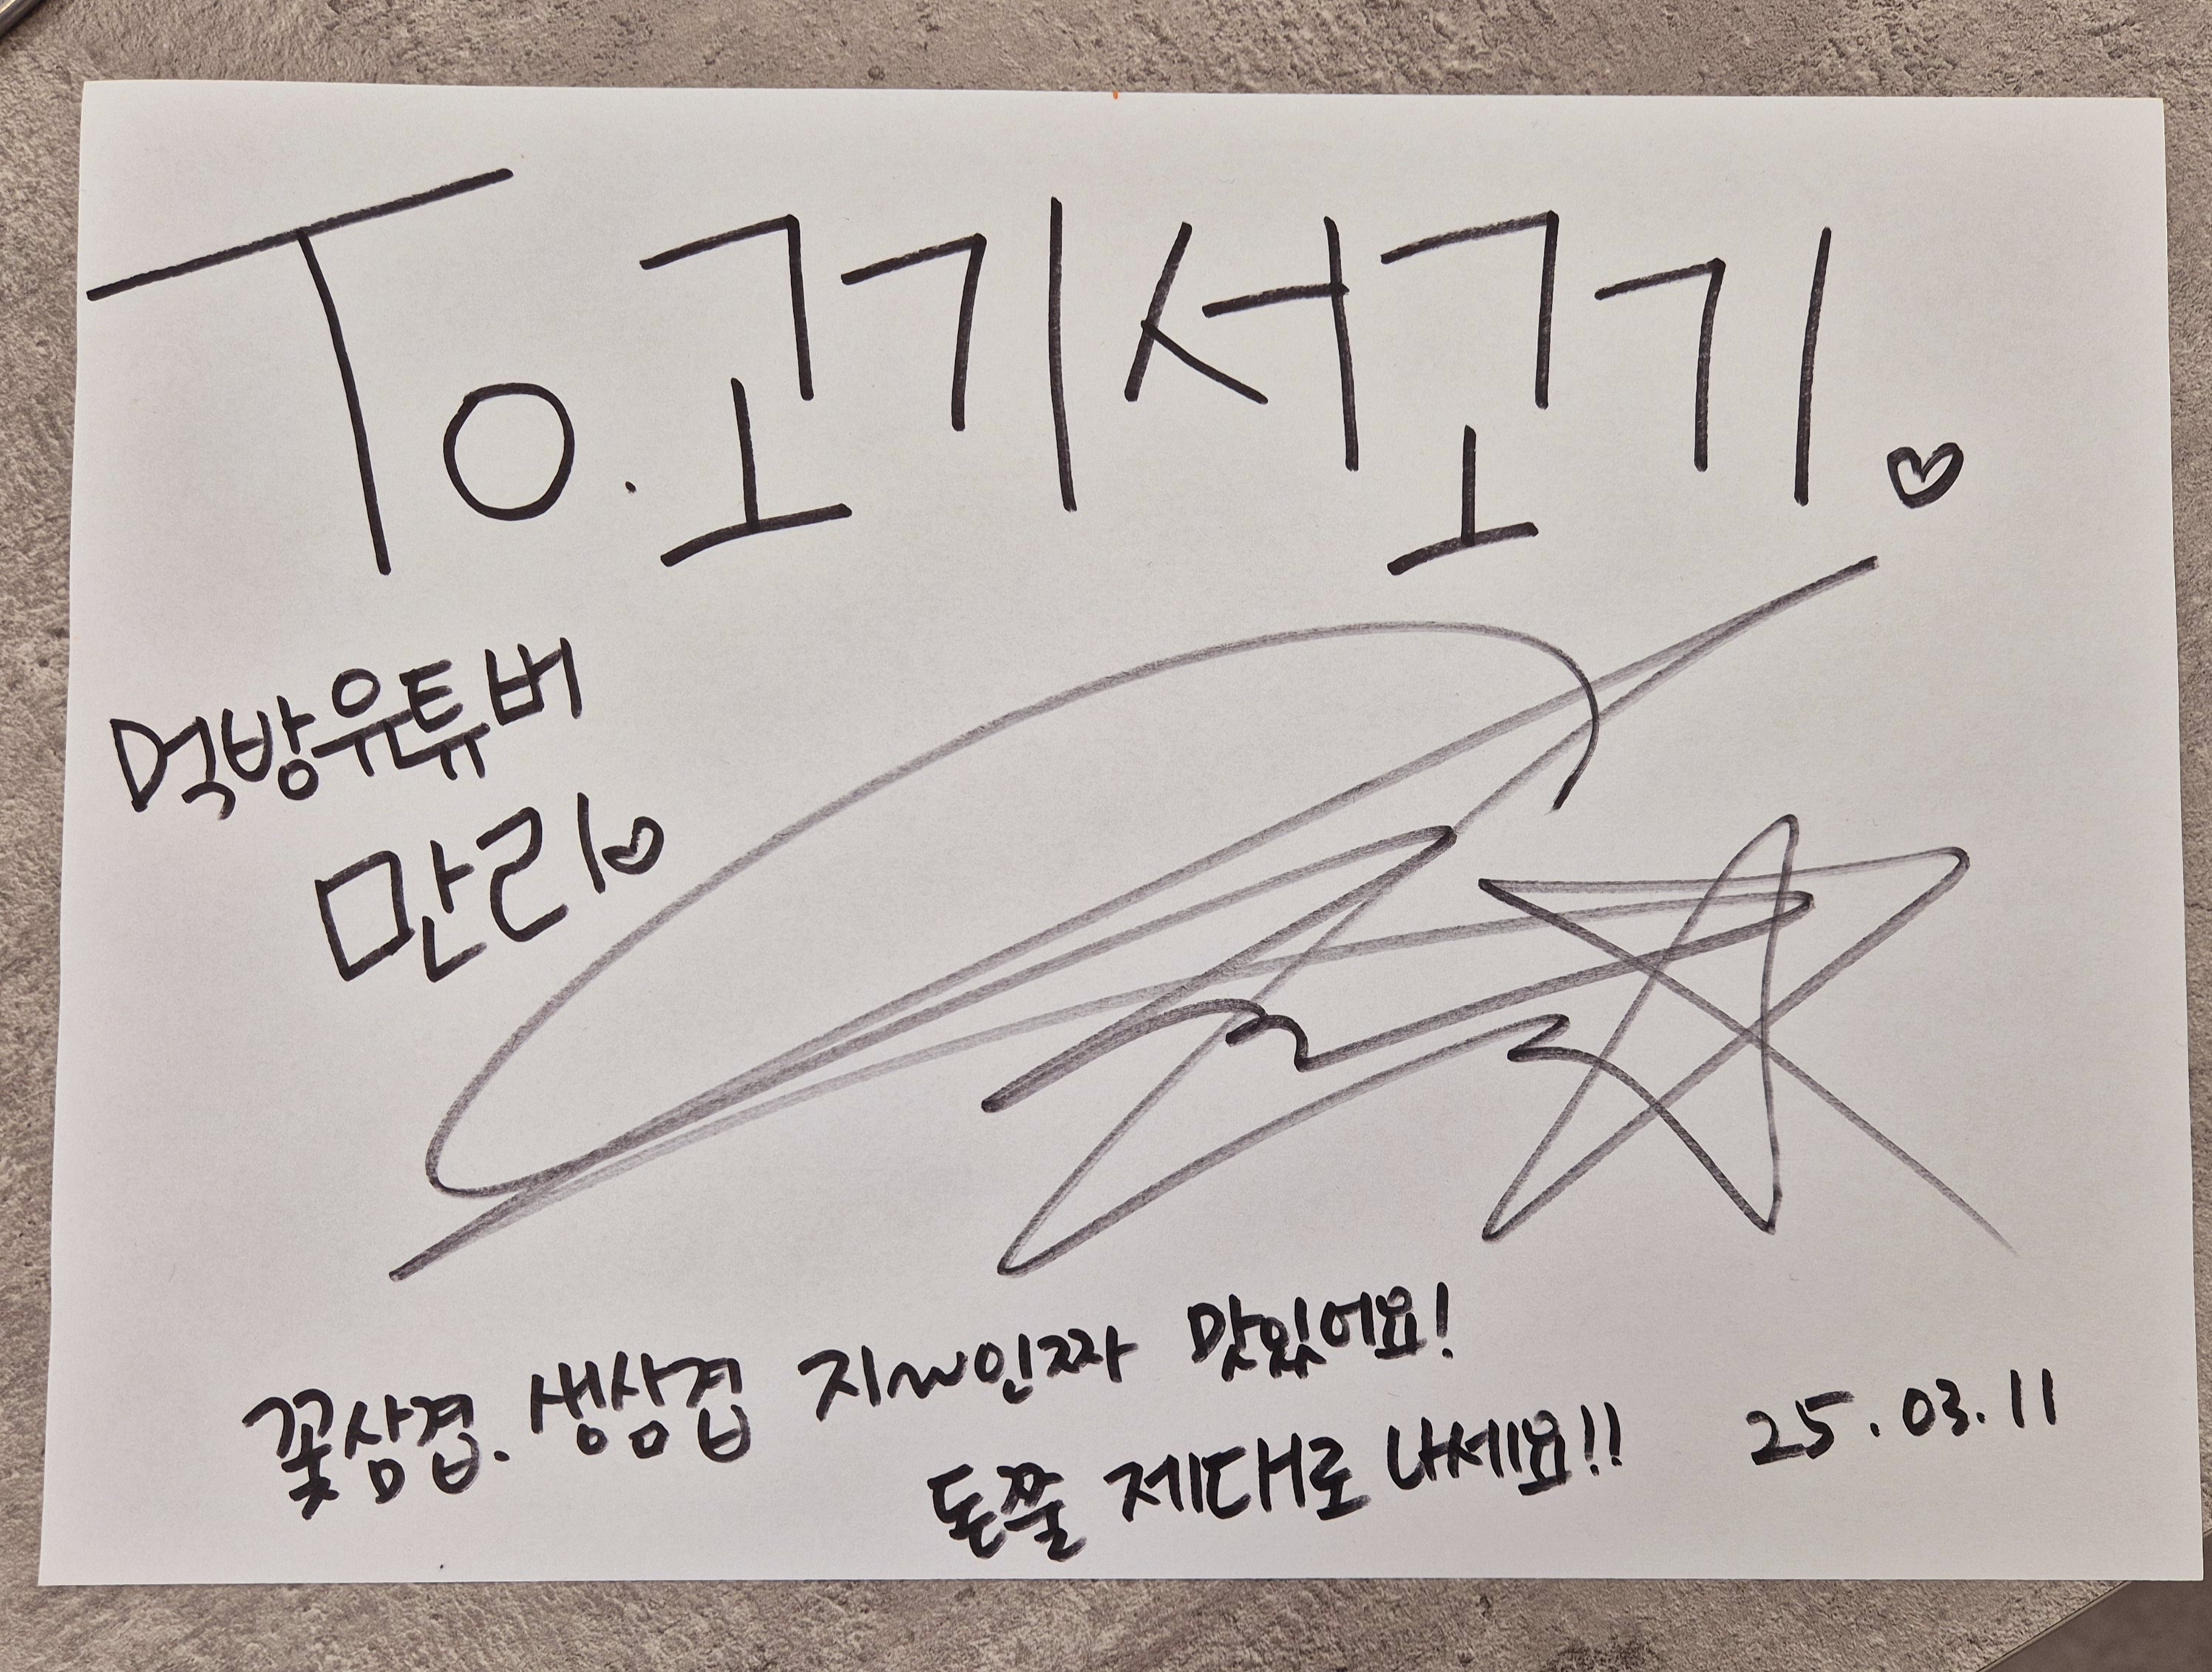 To. 고기서고기. ♡
먹방유튜버
만리♡
꽃삼겹. 생삼겹 지~인짜 맛있어요!
돈쭐 제대로 나세요!! 25.03.11